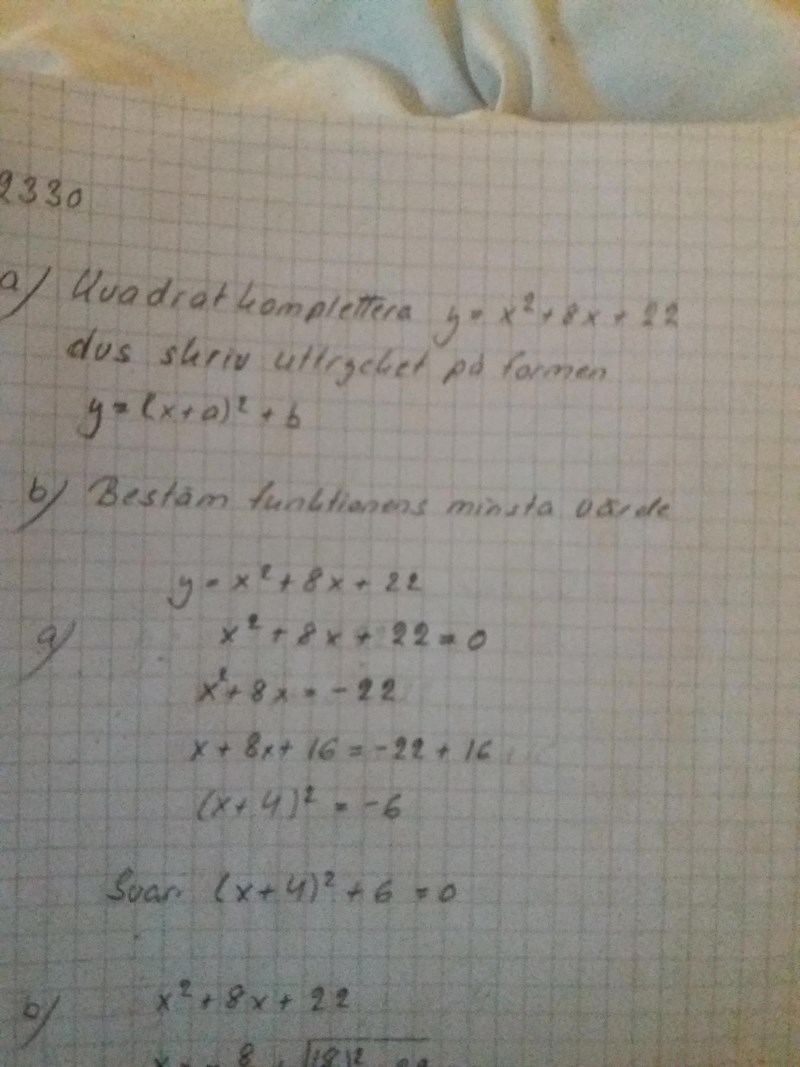 2330
a) Kvadratkomplettera y = x² + 8x + 22
dvs skriv uttrycket på formen
y = (x+a)² + b
b) Bestäm funktionens minsta värde
y = x² + 8x + 22
a) x² + 8x + 22 = 0
x² + 8x = -22
x + 8x + 16 = -22 + 16
(x+4)² = -6
Svar: (x+4)² + 6 = 0
b) x² + 8x + 22